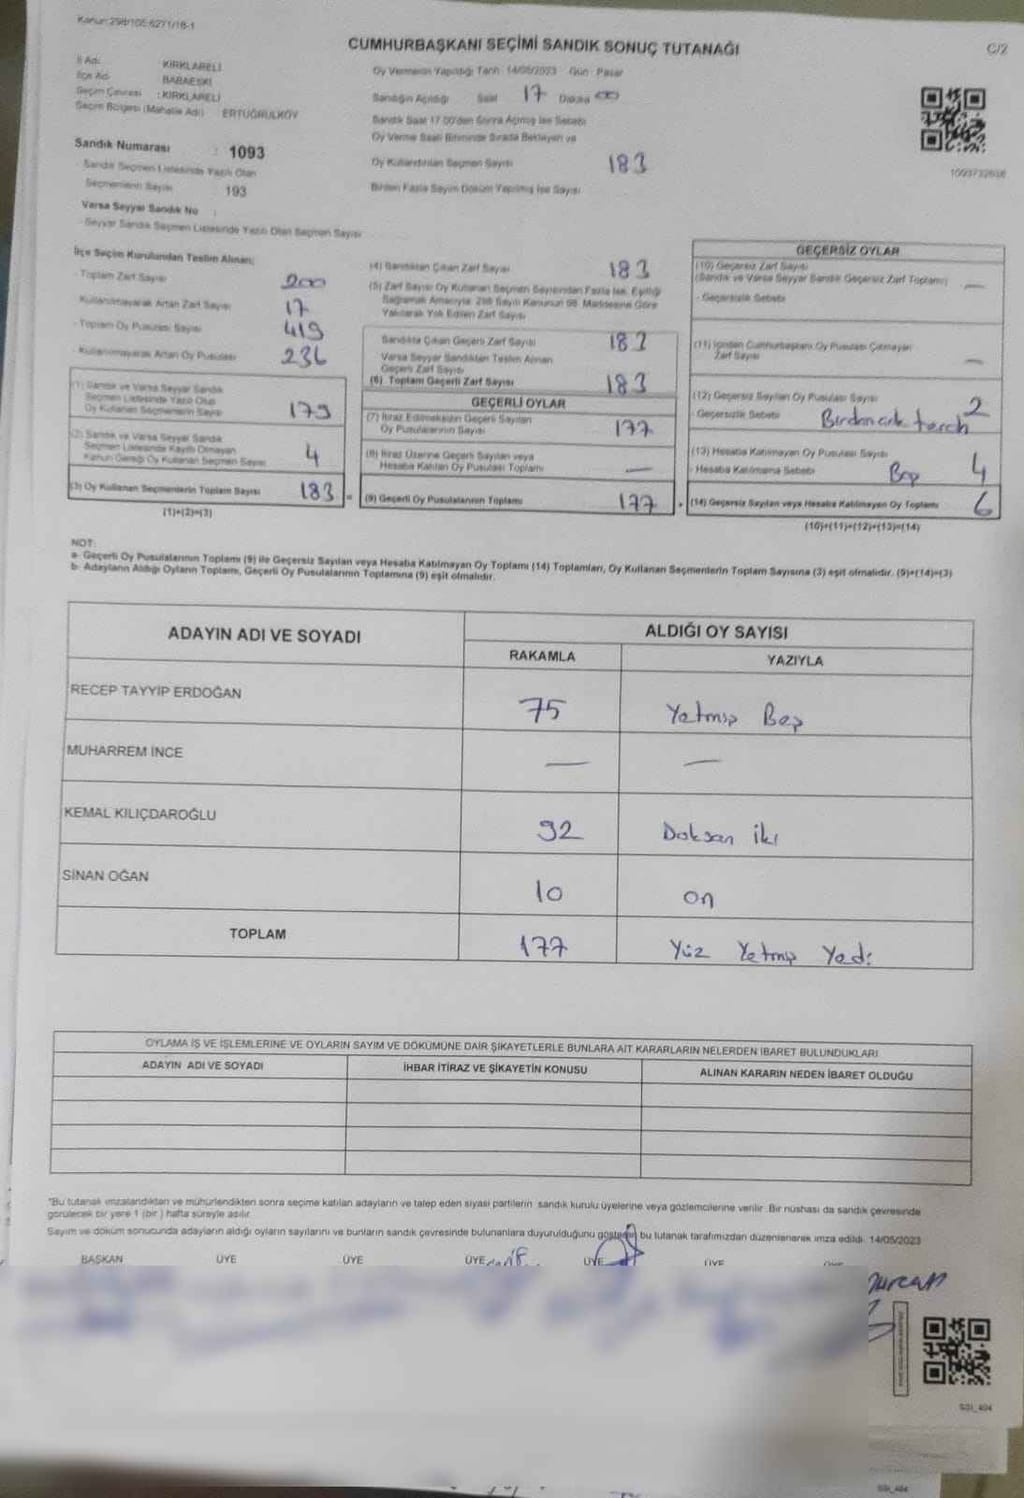 Kanun:298/105-6271/18-1
CUMHURBAŞKANI SEÇİMİ SANDIK SONUÇ TUTANAĞI
C/2
İl Adı : KIRKLARELİ
İlçe Adı BABAESKİ
Seçim Çevresi : KIRKLARELİ
Seçim Bölgesi (Mahalle Adı) ERTUĞRULKÖY
Sandık Numarası : 1093
Sandık Seçmen Listesinde Yazılı Olan
Seçmenlerin Sayısı 193
Varsa Seyyar Sandık No :
Seyyar Sandık Seçmen Listesinde Yazılı Olan Seçmen Sayısı
Oy Vermenin Yapıldığı Tarih 14/05/2023 Gün : Pazar
Sandığın Açıldığı Saat 17 Dakika 00
Sandık Saat 17.00'den Sonra Açılmış İse Sebebi
Oy Verme Saati Bitiminde Sırada Bekleyen ve
Oy Kullandırılan Seçmen Sayısı 183
Birden Fazla Sayım Döküm Yapılmış İse Sayısı
İlçe Seçim Kurulundan Teslim Alınan;
- Toplam Zarf Sayısı 200
Kullanılmayarak Artan Zarf Sayısı 17
- Toplam Oy Pusulası Sayısı 419
- Kullanılmayarak Artan Oy Pusulası 236
(1) Sandık ve Varsa Seyyar Sandık
Seçmen Listesinde Yazılı Olup
Oy Kullanan Seçmenlerin Sayısı 179
(2) Sandık ve Varsa Seyyar Sandık
Seçmen Listesinde Kayıtlı Olmayan
Kanun Gereği Oy Kullanan Seçmen Sayısı 4
(3) Oy Kullanan Seçmenlerin Toplam Sayısı 183 =
(1)+(2)=(3)
(4) Sandıktan Çıkan Zarf Sayısı 183
(5) Zarf Sayısı Oy Kullanan Seçmen Sayısından Fazla İse, Eşitliği
Sağlamak Amacıyla 298 Sayılı Kanunun 98. Maddesine Göre
Yakılarak Yok Edilen Zarf Sayısı
Sandıkta Çıkan Geçerli Zarf Sayısı 183
Varsa Seyyar Sandıktan Teslim Alınan
Geçerli Zarf Sayısı
(6) Toplam Geçerli Zarf Sayısı 183
GEÇERLİ OYLAR
(7) İtiraz Edilmeksizin Geçerli Sayılan
Oy Pusulalarının Sayısı 177
(8) İtiraz Üzerine Geçerli Sayılan veya
Hesaba Katılan Oy Pusulası Toplamı —
(9) Geçerli Oy Pusulalarının Toplamı 177 +
GEÇERSİZ OYLAR
(10) Geçersiz Zarf Sayısı
(Sandık ve Varsa Seyyar Sandık Geçersiz Zarf Toplamı) —
- Geçersizlik Sebebi
(11) İçinden Cumhurbaşkanı Oy Pusulası Çıkmayan
Zarf Sayısı —
(12) Geçersiz Sayılan Oy Pusulası Sayısı 2
- Geçersizlik Sebebi
(13) Hesaba Katılmayan Oy Pusulası Sayısı 4
- Hesaba Katılmama Sebebi Boş
(14) Geçersiz Sayılan veya Hesaba Katılmayan Oy Toplamı 6
(10)+(11)+(12)+(13)=(14)
NOT:
a- Geçerli Oy Pusulalarının Toplamı (9) ile Geçersiz Sayılan veya Hesaba Katılmayan Oy Toplamı (14) Toplamları, Oy Kullanan Seçmenlerin Toplam Sayısına (3) eşit olmalıdır. (9)+(14)=(3)
b- Adayların Aldığı Oyların Toplamı, Geçerli Oy Pusulalarının Toplamına (9) eşit olmalıdır.
ADAYIN ADI VE SOYADI
ALDIĞI OY SAYISI
RAKAMLA
YAZIYLA
RECEP TAYYİP ERDOĞAN 75 Yetmiş Beş
MUHARREM İNCE — —
KEMAL KILIÇDAROĞLU 92 Doksan iki
SİNAN OĞAN 10 on
TOPLAM 177 Yüz Yetmiş Yedi
OYLAMA İŞ VE İŞLEMLERİNE VE OYLARIN SAYIM VE DÖKÜMÜNE DAİR ŞİKAYETLERLE BUNLARA AİT KARARLARIN NELERDEN İBARET BULUNDUKLARI
ADAYIN ADI VE SOYADI
İHBAR İTİRAZ VE ŞİKAYETİN KONUSU
ALINAN KARARIN NEDEN İBARET OLDUĞU
*Bu tutanak imzalandıktan ve mühürlendikten sonra seçime katılan adayların ve talep eden siyasi partilerin sandık kurulu üyelerine veya gözlemcilerine verilir. Bir nüshası da sandık çevresinde
görülecek bir yere 1 (bir ) hafta süreyle asılır.
Sayım ve döküm sonucunda adayların aldığı oyların sayılarını ve bunların sandık çevresinde bulunanlara duyurulduğunu gösteren bu tutanak tarafımızdan düzenlenerek imza edildi. 14/05/2023
BAŞKAN ÜYE ÜYE ÜYE ÜYE ÜYE
SSİ_404
SSİ_404